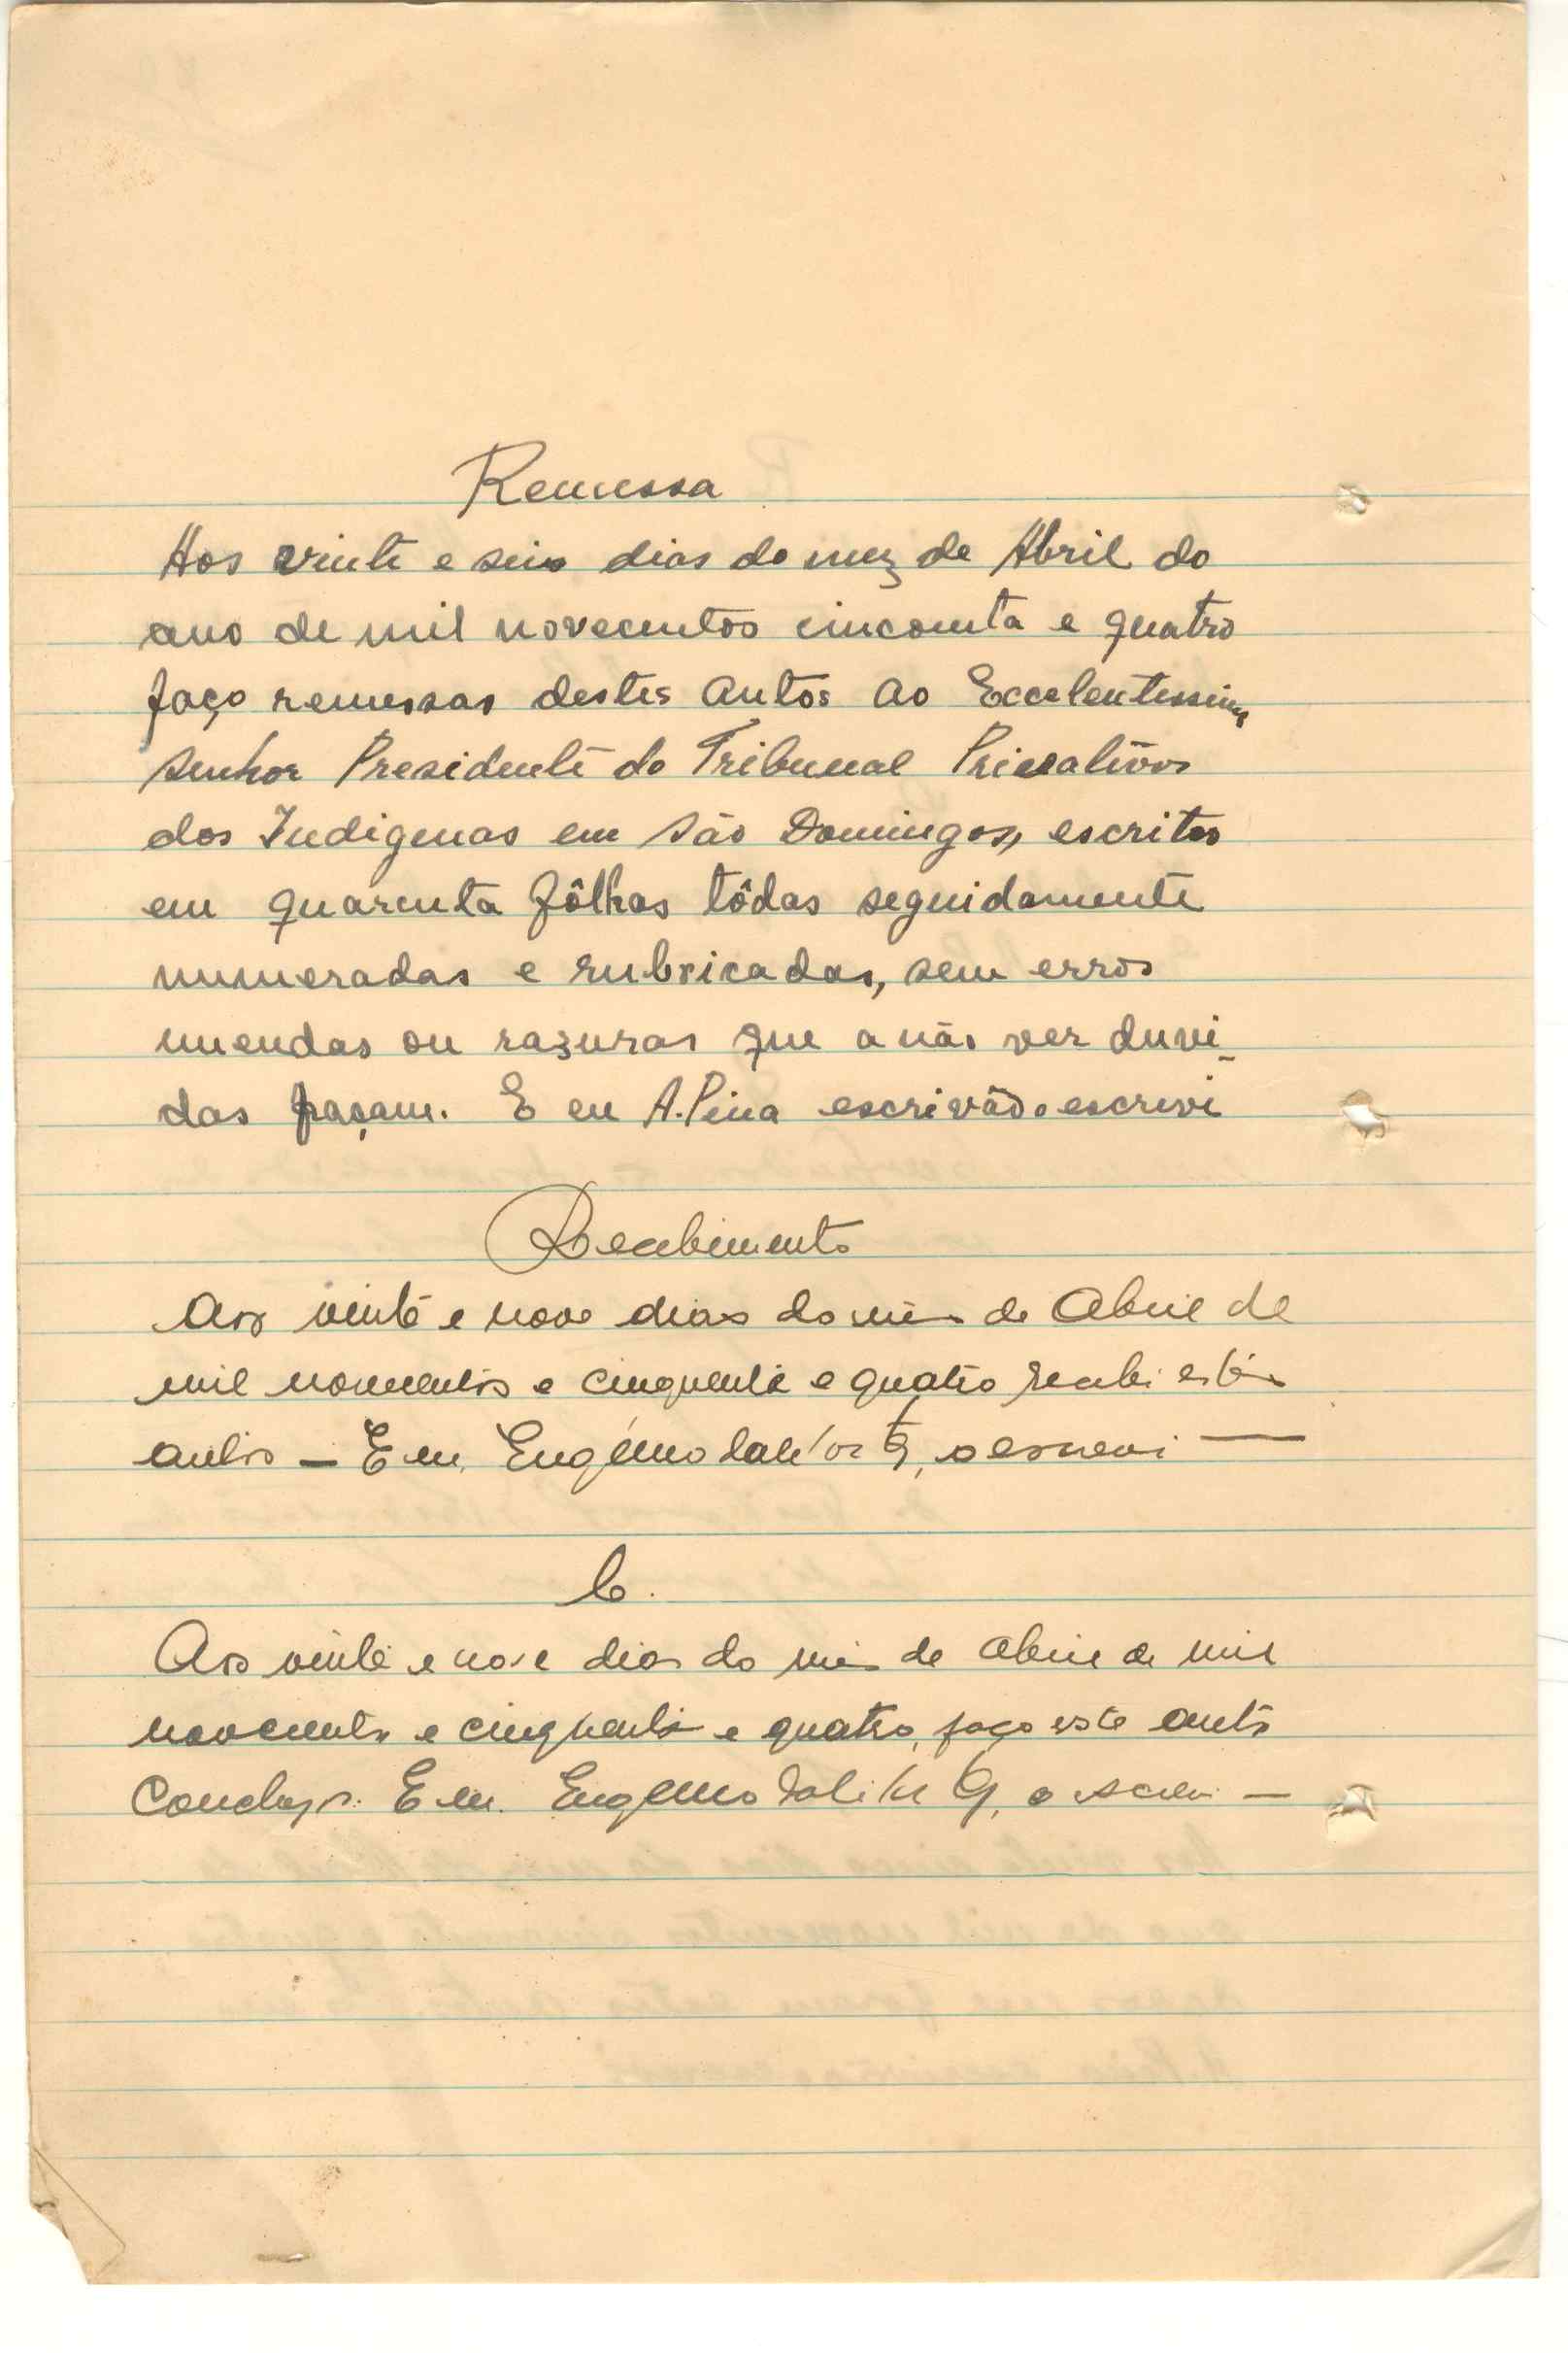 Remessa
Aos vinte e seis dias do mez de Abril do
ano de mil novecentos cincoenta e quatro
faço remessas destes autos ao Excelentissimo
Senhor Presidente do Tribunal Privativos
dos Indigenas em São Domingos, escritos
em quarenta fôlhas tôdas seguidamente
numeradas e rubricadas, sem erros
emendas ou razuras que a não ver duvi-
das façam. E eu A. Pina escrivão o escrevi
Recebimento
Aos vinte e nove dias do mês de Abril de
mil novecentos e cinquenta e quatro recebi estes
autos — E eu, Eugénio o escrevi —
C.
Aos vinte e nove dias do mês de Abril de mil
novecentos e cinquenta e quatro, faço este auto
Concluso. E eu. Eugenio o escrevi —